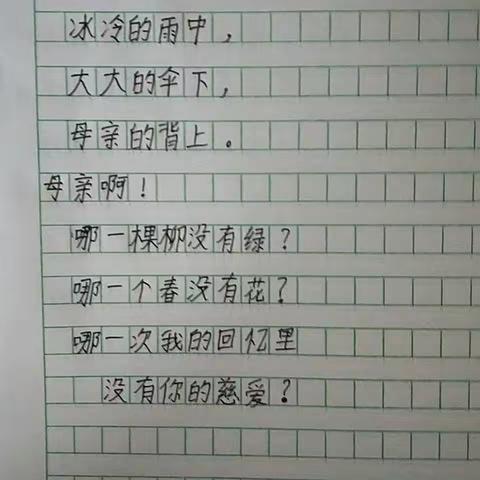 冰冷的雨中，
大大的伞下，
母亲的背上。
母亲啊！
哪一棵柳没有绿？
哪一个春没有花？
哪一次我的回忆里
没有你的慈爱？